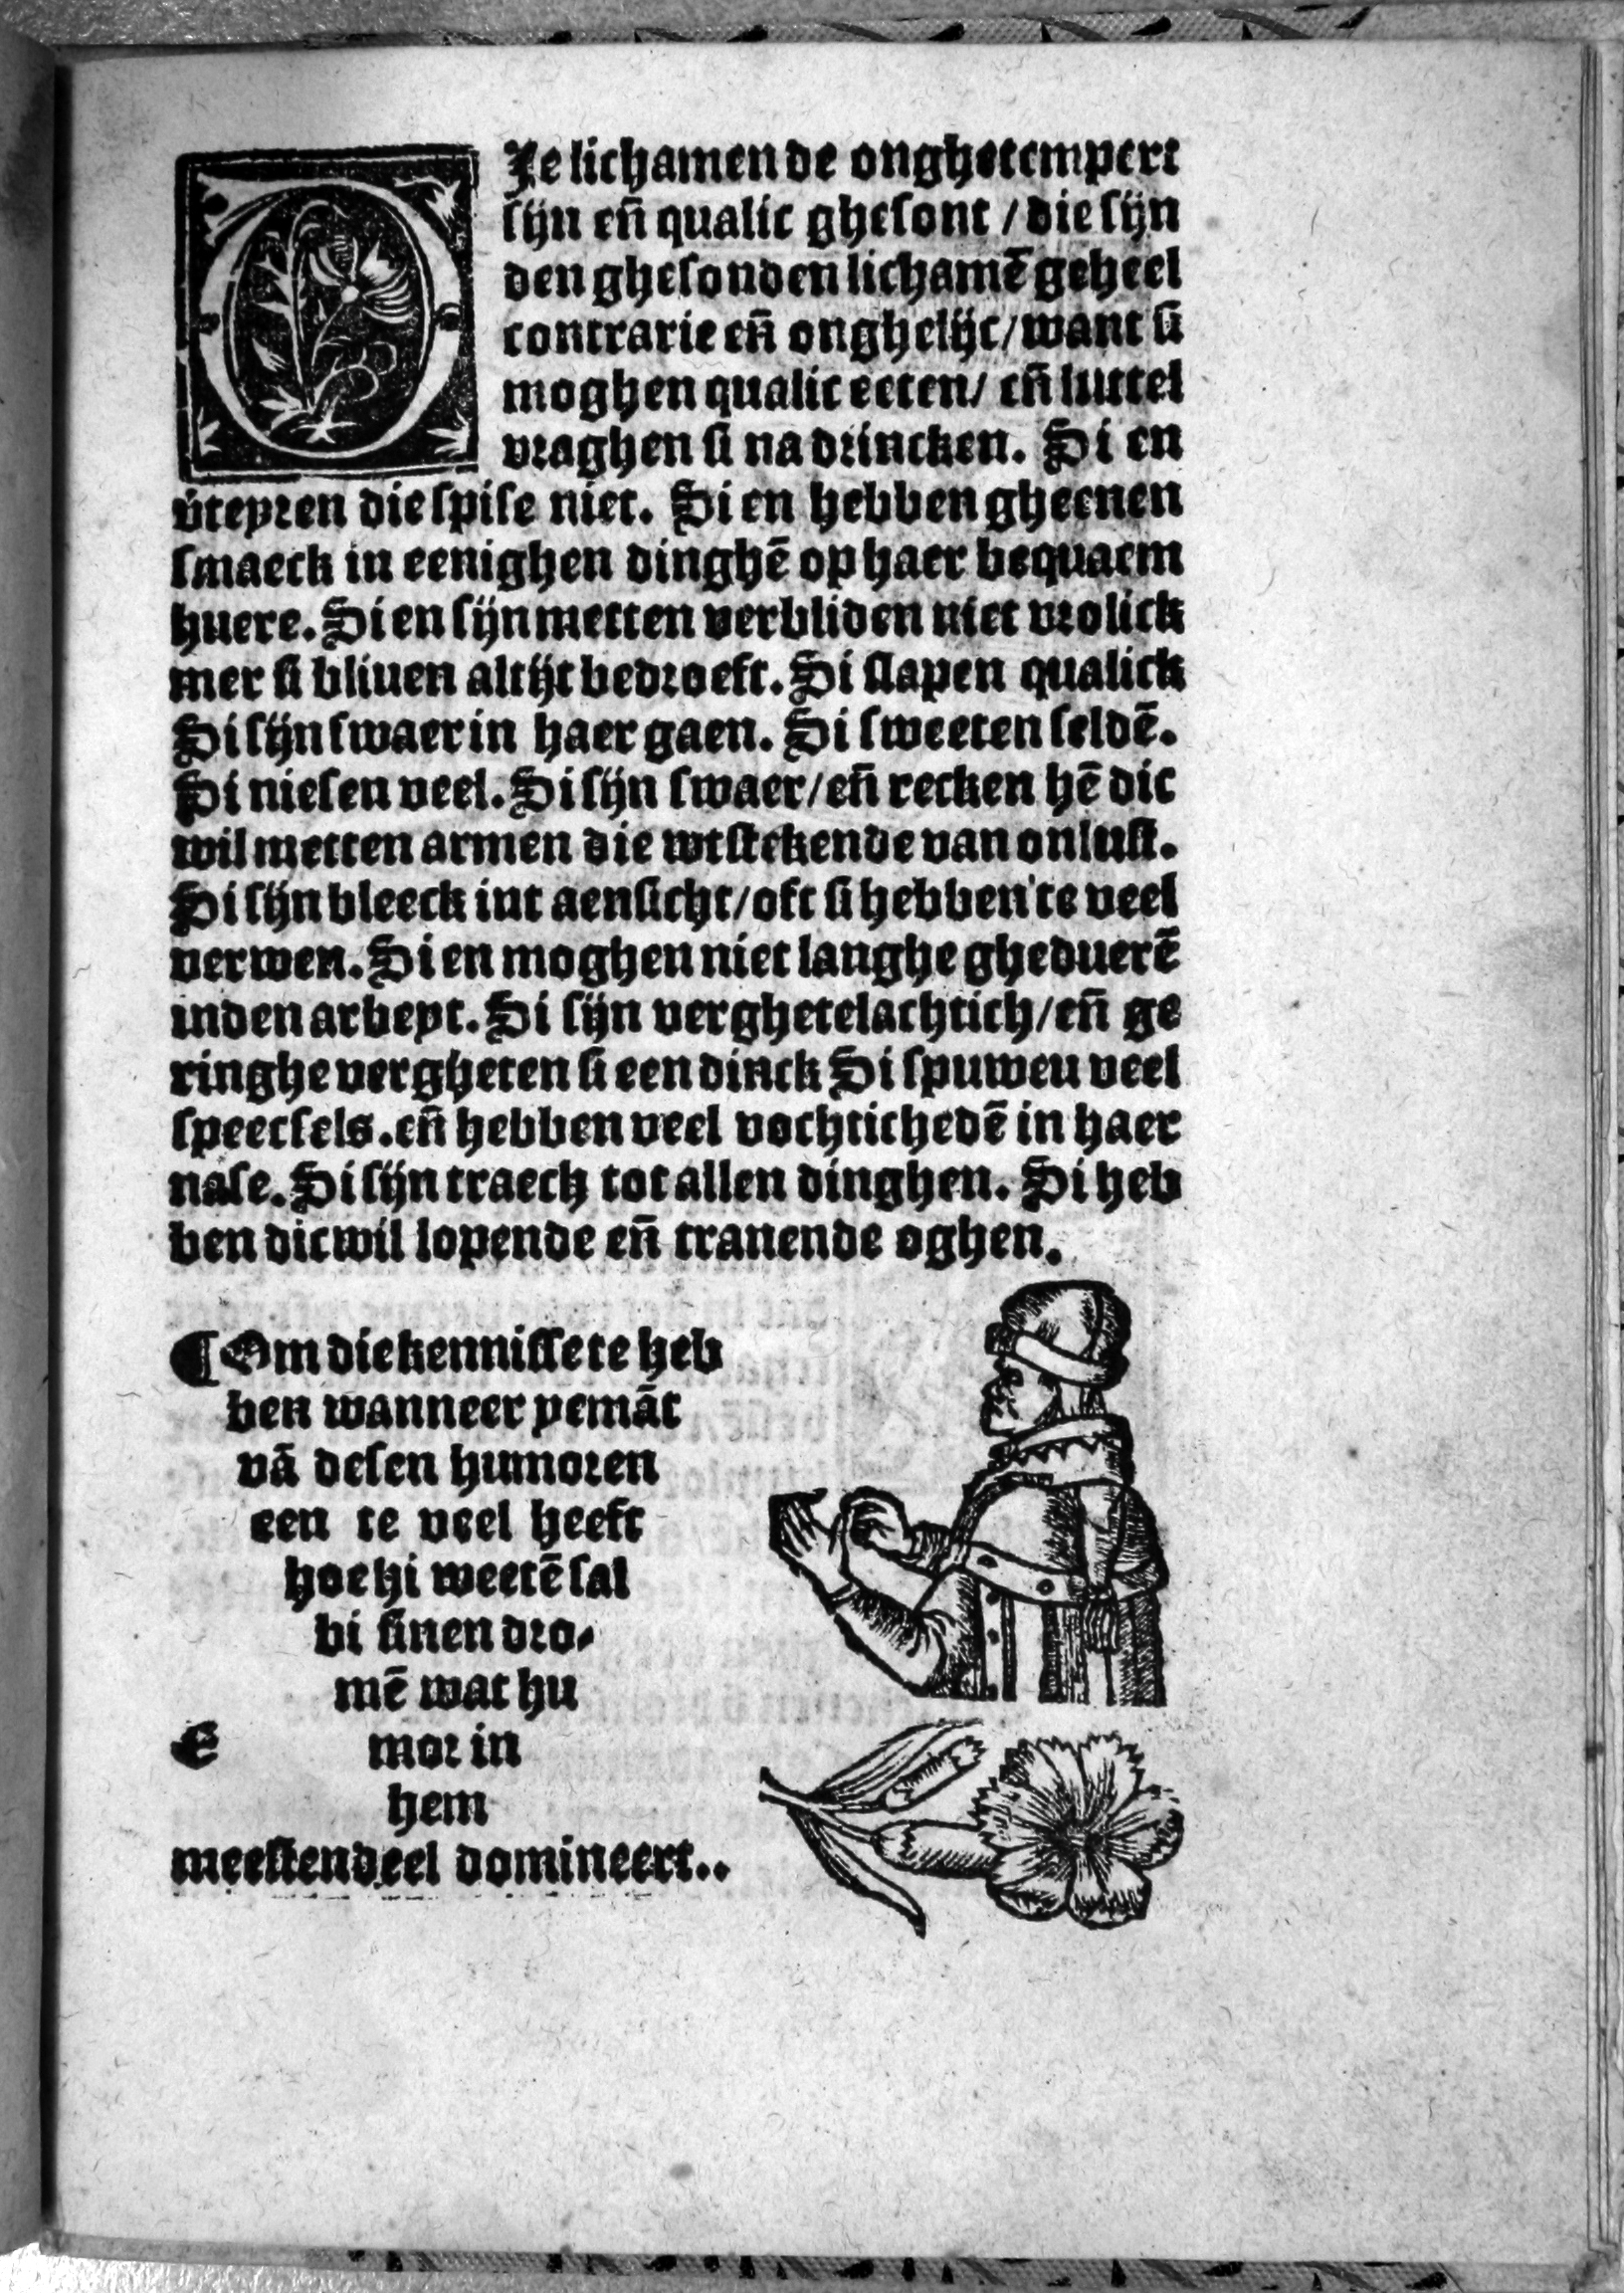 DIe lichamen de onghetempert
sijn eñ qualic ghesont / die sijn
den ghesonden lichamē geheel
contrarie eñ onghelijc / want si
moghen qualic eeten / eñ luttel
vraghen si na drincken. Si en
vteyren die spise niet. Si en hebben gheenen
smaeck in eenighen dinghē op haer bequaem
huere. Si en sijn metten verbliden niet vrolick
mer si bliuen altijt bedroeft. Si slapen qualick
Si sijn swaer in haer gaen. Si sweeten seldē.
Si niesen veel. Si sijn swaer / eñ recken hē dic
wil metten armen die wtstekende van onlust.
Si sijn bleeck int aensicht / oft si hebben te veel
verwen. Si en moghen niet langhe gheduerē
inden arbeyt. Si sijn verghetelachtich / eñ ge
ringhe vergheten si een dinck Si spuweu veel
speecsels. eñ hebben veel vochtichedē in haer
nase. Si sijn traech tot allen dinghen. Si heb
ben dicwil lopende eñ tranende oghen.
¶ Om die kennisse te heb
ben wanneer yemāt
vā desen humoren
een te veel heeft
hoe hi weetē sal
bi sinen dro-
mē wat hu
mor in
hem
meestendeel domineert..
E